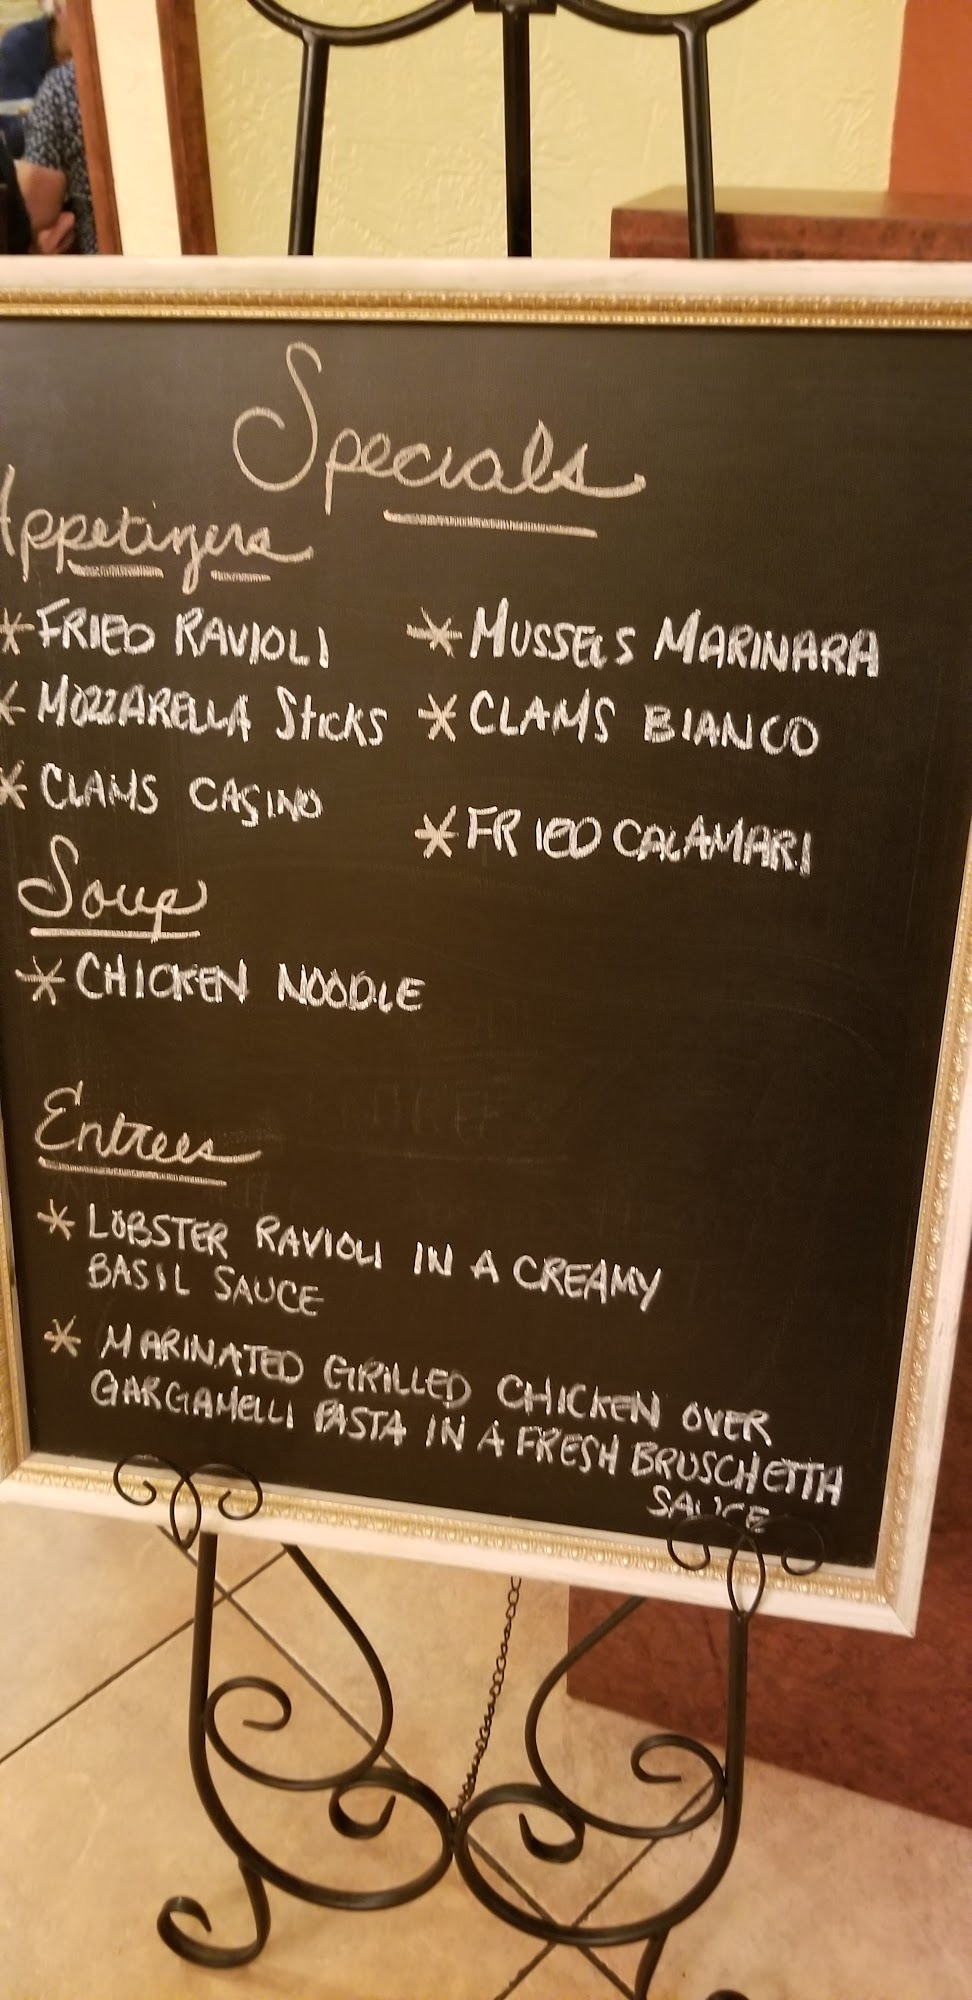 Specials
Appetizers
* FRIED RAVIOLI
* MOZZARELLA STICKS
* CLAMS CASINO
* MUSSELS MARINARA
* CLAMS BIANCO
* FRIED CALAMARI
Soup
* CHICKEN NOODLE
Entrees
* LOBSTER RAVIOLI IN A CREAMY
BASIL SAUCE
* MARINATED GRILLED CHICKEN OVER
GARGAMELLI PASTA IN A FRESH BRUSCHETTA
SAUCE